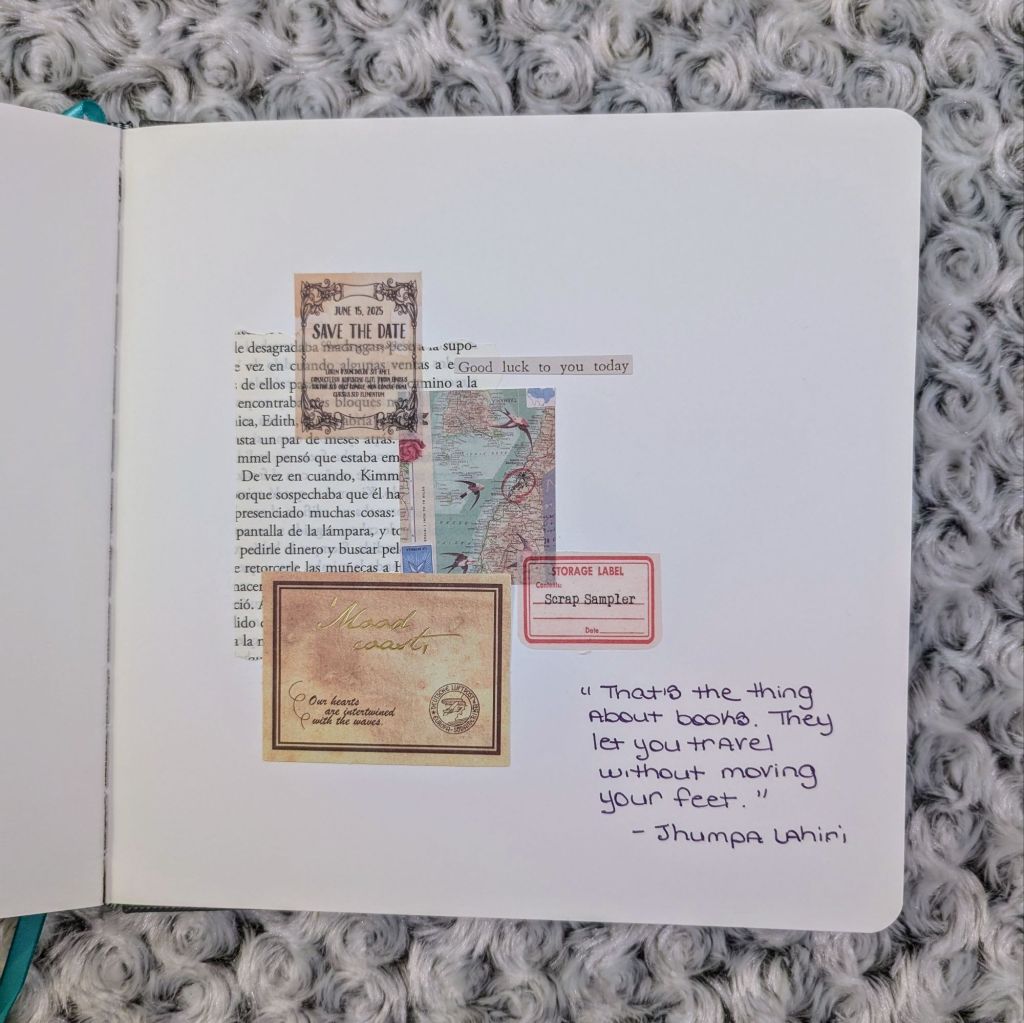 JUNE 15, 2025
SAVE THE DATE
LOREM IPSUM DOLOR SIT AMET,
de desagradaba madrugar, pese a la supo-
e vez en cuando algunas ventas a e
s de ellos pas camino a la
encontraba los bloques
ica, Edith, habría
asta un par de meses atrás.
mmel pensó que estaba em
De vez en cuando, Kimm
porque sospechaba que él ha
presenciado muchas cosas:
pantalla de la lámpara, y to
pedirle dinero y buscar pel
e retorcerle las muñecas a H
nacer
ció. A
lido
a la
Good luck to you today
STORAGE LABEL
Contents:
Scrap Sampler
Date
Mood
coast,
Our hearts
are intertwined
with the waves.
DEUTSCHE LUFTPOST
"That's the thing
About books. They
let you travel
without moving
your feet."
- Jhumpa Lahiri